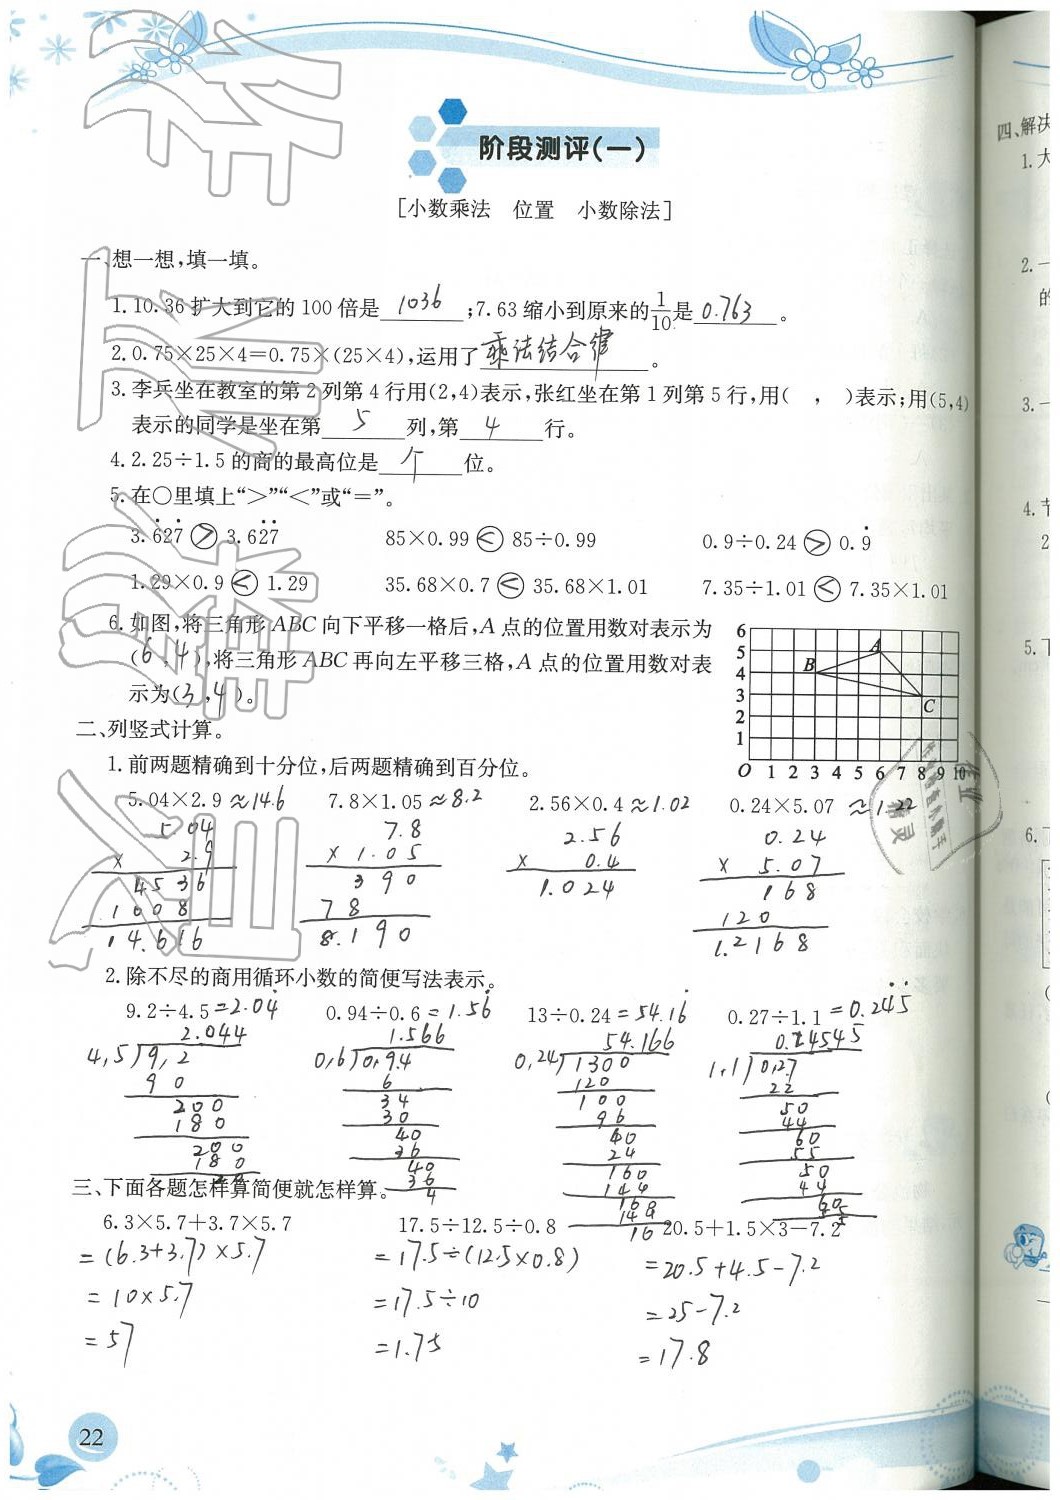 阶段测评(一)
[小数乘法 位置 小数除法]
一、想一想,填一填。
1. 10.36扩大到它的100倍是 1036 ;7.63缩小到原来的1/10是 0.763 。
2. 0.75×25×4=0.75×(25×4),运用了 乘法结合律 。
3. 李兵坐在教室的第2列第4行用(2,4)表示,张红坐在第1列第5行,用( , )表示;用(5,4)
表示的同学是坐在第 5 列,第 4 行。
4. 2.25÷1.5的商的最高位是 个 位。
5. 在○里填上“>”“<”或“=”。
3.6̇27̇ > 3.62̇7̇ 85×0.99 < 85÷0.99 0.9÷0.24 > 0.9̇
1.29×0.9 < 1.29 35.68×0.7 < 35.68×1.01 7.35÷1.01 < 7.35×1.01
6. 如图,将三角形ABC向下平移一格后,A点的位置用数对表示为
(6,4),将三角形ABC再向左平移三格,A点的位置用数对表
示为(3,4)。
6
5
4
3
2
1
A
B
C
O 1 2 3 4 5 6 7 8 9 10
二、列竖式计算。
1. 前两题精确到十分位,后两题精确到百分位。
5.04×2.9 ≈14.6 7.8×1.05 ≈8.2 2.56×0.4 ≈1.02 0.24×5.07 ≈1.22
5.04 7.8 2.56 0.24
× 2.9 × 1.05 × 0.4 × 5.07
4536 390 1.024 168
1008 78 120
14.616 8.190 1.2168
2. 除不尽的商用循环小数的简便写法表示。
9.2÷4.5 =2.04̇ 0.94÷0.6 =1.56̇ 13÷0.24 =54.16̇ 0.27÷1.1 =0.24̇5̇
2.044 1.566 54.166 0.24545
4.5)9.2 0.6)0.94 0.24)1300 1.1)0.27
90 6 120 22
200 34 100 50
180 30 96 44
200 40 40 60
180 36 24 55
20 40 160 50
36 144 44
4 160 60
144 55
16 5
三、下面各题怎样算简便就怎样算。
6.3×5.7+3.7×5.7 17.5÷12.5÷0.8 20.5+1.5×3-7.2
=(6.3+3.7)×5.7 =17.5÷(12.5×0.8) =20.5+4.5-7.2
=10×5.7 =17.5÷10 =25-7.2
=57 =1.75 =17.8
22
四、解决
1. 大
2. 一
的
3. 一
4. 节
2
5. 下
6. 下
作业
精灵